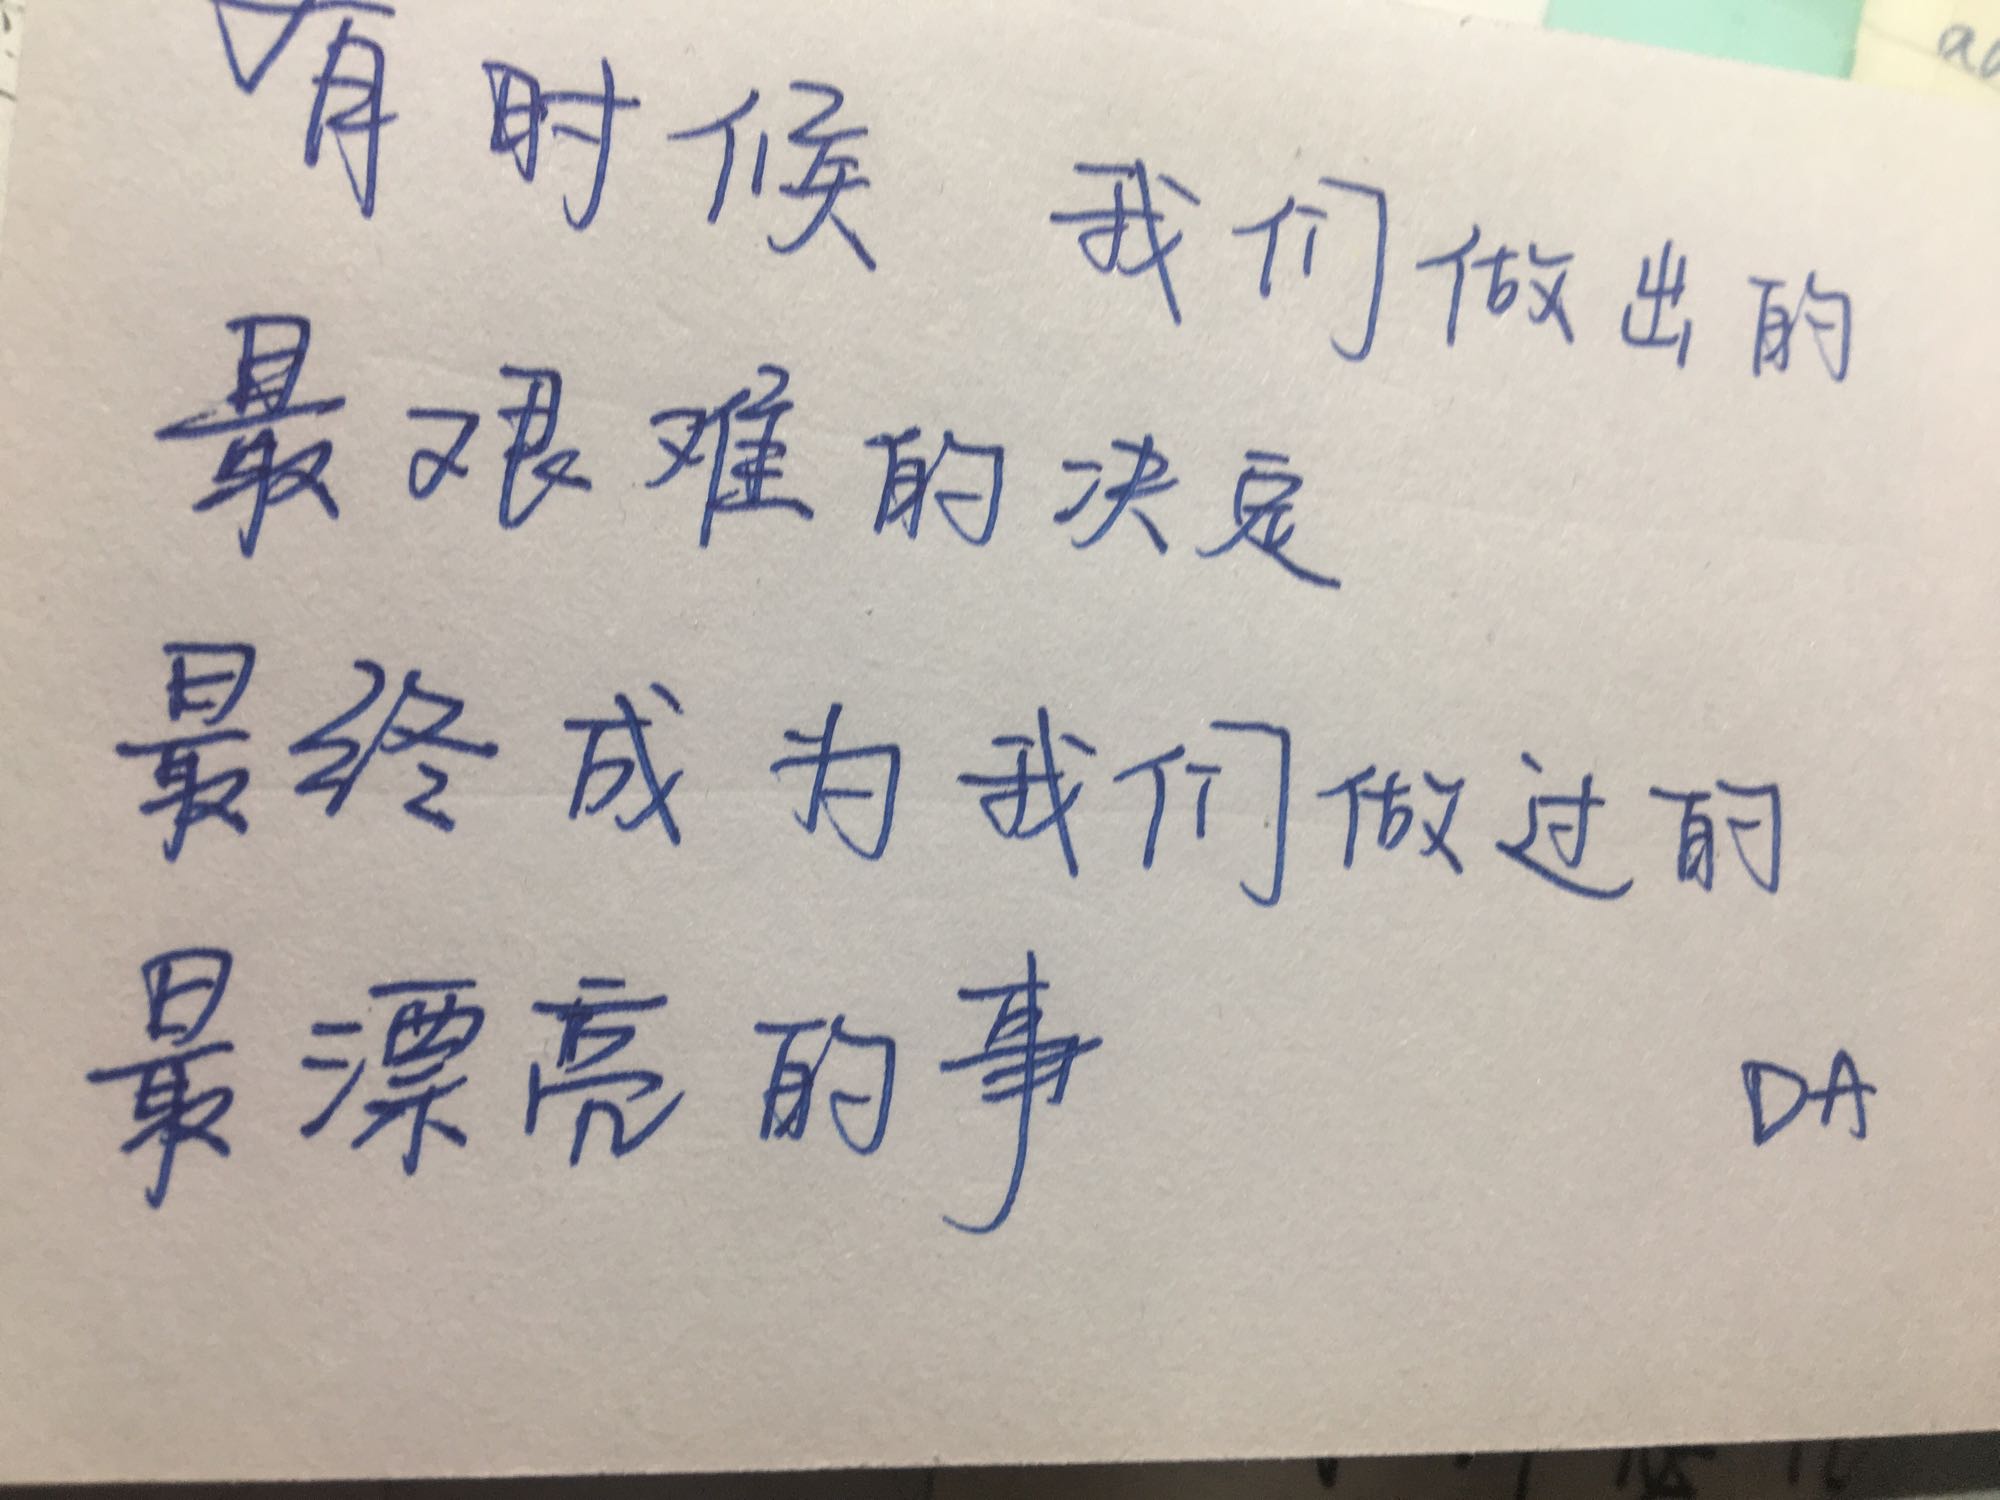 有时候 我们做出的
最艰难的决定
最终成为我们做过的
最漂亮的事
DA